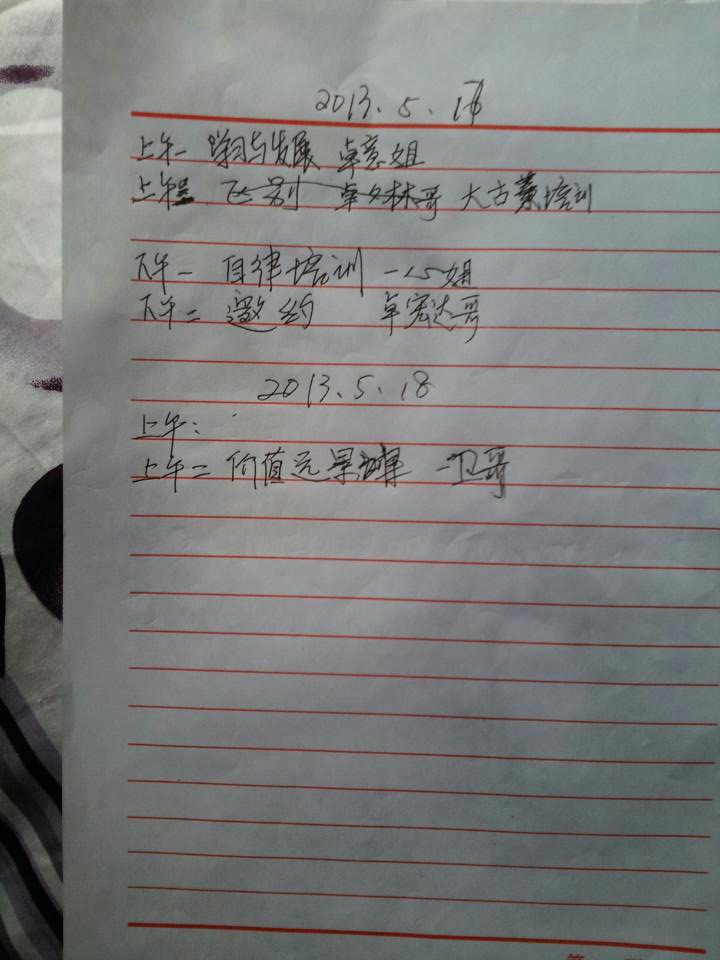 2013.5.17
上午一 学习与发展 卓意姐
上午二 区别 卓夕林哥 大古董培训
下午一 自律培训 一心姐
下午二 邀约 卓宏达哥
2013.5.18
上午:
上午二 价值远景 一卫哥